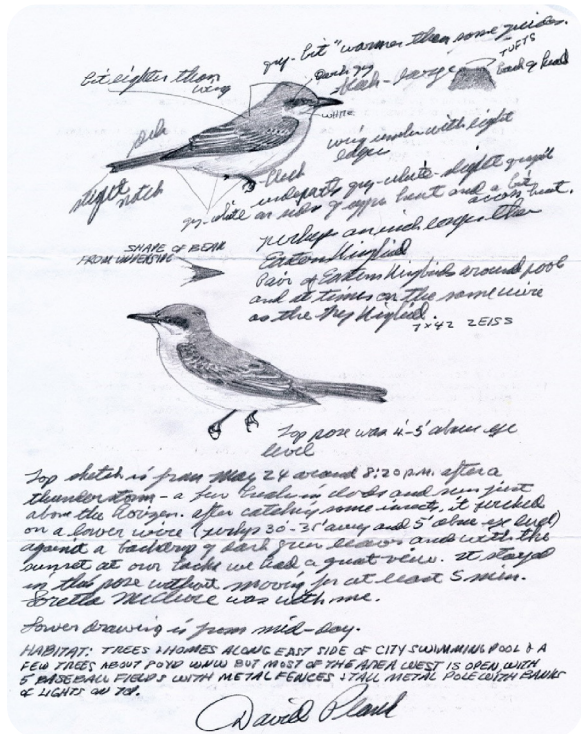 gry- bit "warmer than some guides.
TUFTS
back of head
bit lighter than
wing
dark gry
black - large
WHITE
wing under with light
edges
pale
slight
notch
black
underparts gry-white - slight
gry-white on sides of upper breast and a bit
across breast.
perhaps an inch larger than
Eastern Kingbird
SHAPE OF BEAK
FROM UNDERSIDE
Pair of Eastern Kingbirds around pool
and at times on the same wire
as the Gry Kingbird.
7x42 ZEISS
Top pose was 4-5' above eye
level
Top sketch is from May 24 around 8:20 p.m. after a
thunderstorm - a few breaks in clouds and sun just
above the horizon. After catching some insects, it perched
on a lower wire (perhaps 30'-35' away and 5' above eye level)
against a backdrop of dark green leaves and with the
sunset at our backs we had a great view. It stayed
in this pose without moving for at least 5 min.
Loretta McClure was with me.
Lower drawing is from mid-day.
HABITAT: TREES & HOMES ALONG EAST SIDE OF CITY SWIMMING POOL & A
FEW TREES ABOUT POYD WNW BUT MOST OF THE AREA WEST IS OPEN WITH
5 BASEBALL FIELDS WITH METAL FENCES & TALL METAL POLE WITH BANKS
OF LIGHTS ON TOP.
David Plank